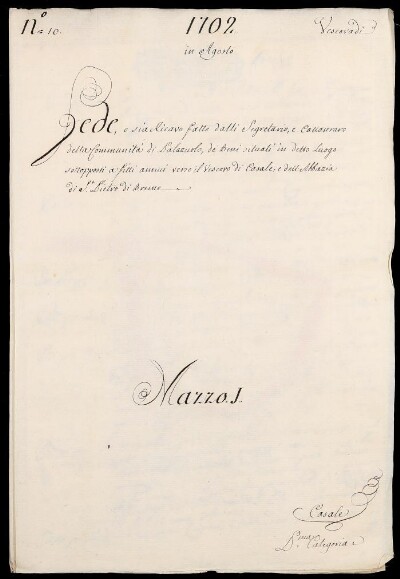 N.º 10.
1702
Vescovadi
in Agosto
Fede, o sia Ricavo fatto dalli Segretaro, e Cattastraro
della Communità di Palazzolo, de Beni situati in detto Luogo
sottopposti a fitti annui verso il Vescovo di Casale, e dell'Abbazia
di S. Pietro di
Mazzo. 1.
Casale
Categoria